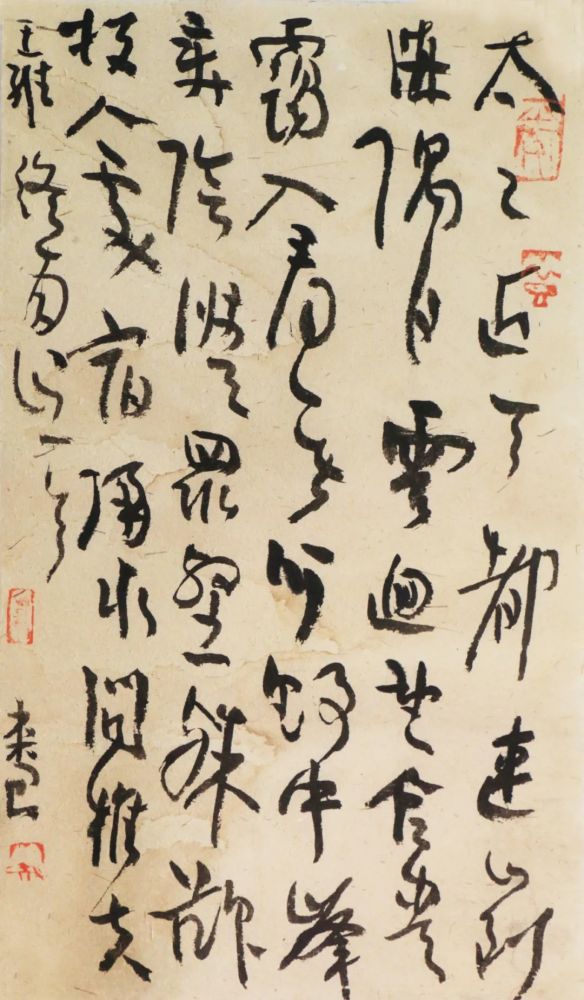 太乙近天都連山到
海隅白雲迴望合青
靄入看無分野中峯
變陰晴眾壑殊欲
投人處宿隔水問樵夫
王維終南山一首